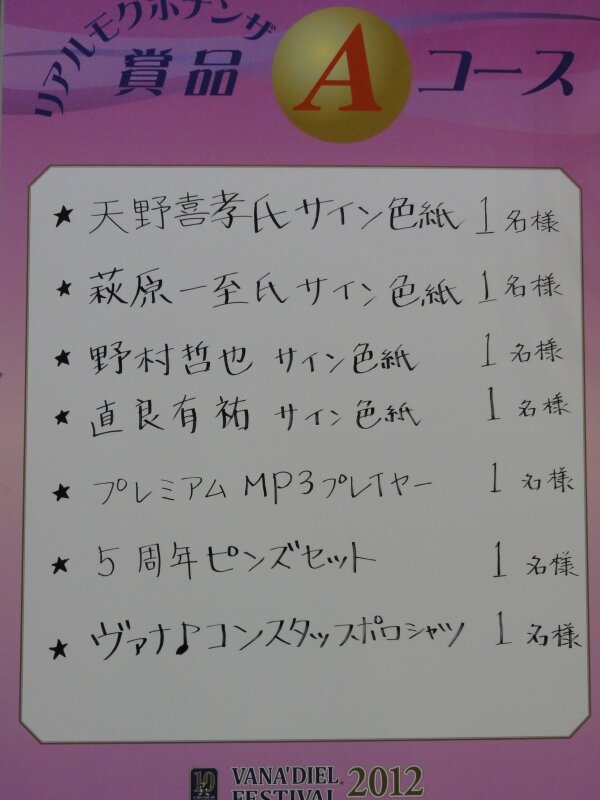 リアルモグボナンザ
賞品 A コース
★ 天野喜孝氏 サイン色紙 1名様
★ 萩原一至氏 サイン色紙 1名様
★ 野村哲也 サイン色紙 1名様
★ 直良有祐 サイン色紙 1名様
★ プレミアム MP3プレイヤー 1名様
★ 5周年ピンズセット 1名様
★ ヴァナ♪コンスタッフポロシャツ 1名様
10
VANA'DIEL
FESTIVAL 2012